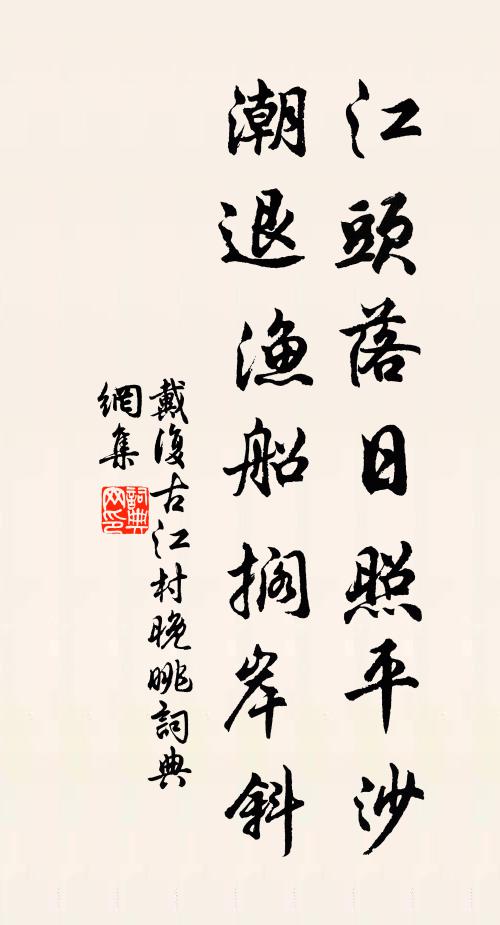 江頭落日照平沙
潮退漁船擱岸斜
戴復古江村晚眺詞典
網集
詞典网印